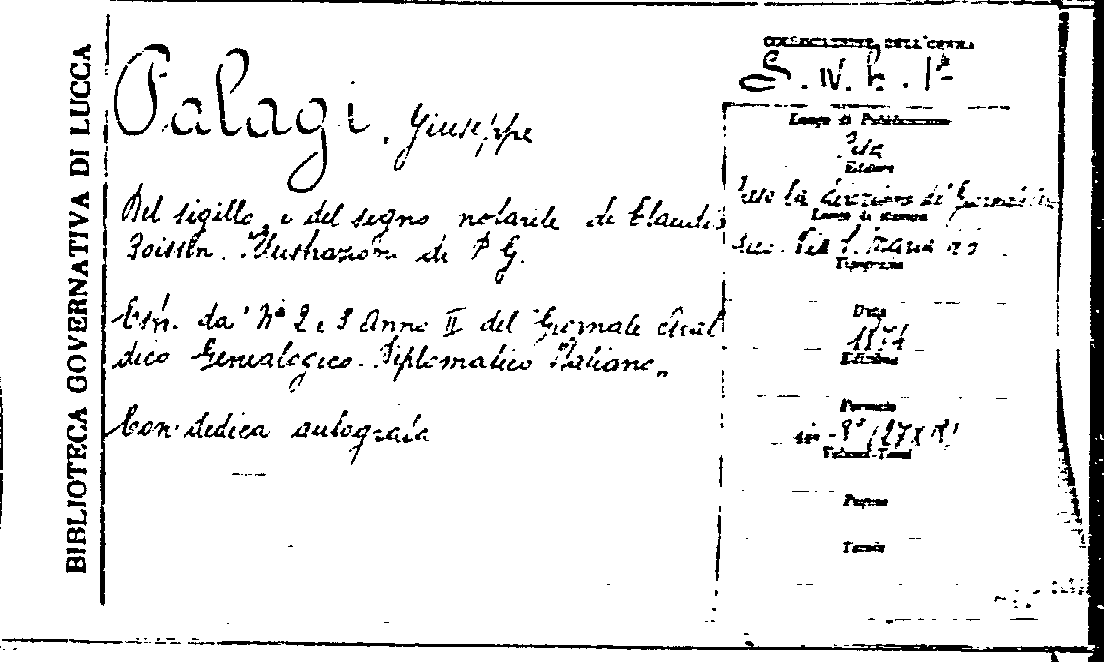 BIBLIOTECA GOVERNATIVA DI LUCCA
Palagi, Giuseppe
Del sigillo e del segno notarile di Claudio
Illustrazione di P G.
Estr. da' Nⁱ 2 e 3 Anno II del Giornale Aral
dico Genealogico-Diplomatico Italiano„
Con dedica autografa
COLLOCAZIONE DELL'OPERA
S. IV. h. 1ª
Luogo di Pubblicazione
Pisa
Editore
la direzione del Giornale
Luogo di stampa
Via S. Maria
Tipografia
Data
1874
Edizione
Formato
in-8° (27 X
Volumi-Tomi
Pagine
Tavole